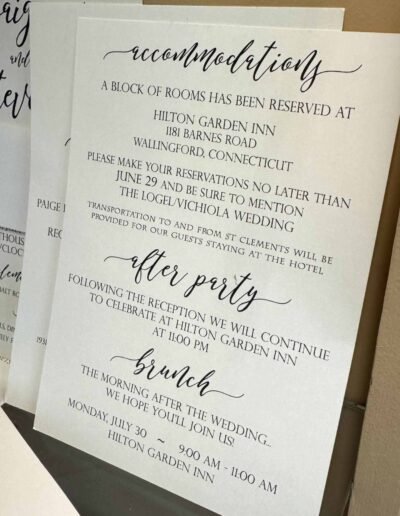 accommodations
A BLOCK OF ROOMS HAS BEEN RESERVED AT
HILTON GARDEN INN
1181 BARNES ROAD
WALLINGFORD, CONNECTICUT
PLEASE MAKE YOUR RESERVATIONS NO LATER THAN
JUNE 29 AND BE SURE TO MENTION
THE LOGEL/VICHIOLA WEDDING
TRANSPORTATION TO AND FROM ST CLEMENTS WILL BE
PROVIDED FOR OUR GUESTS STAYING AT THE HOTEL
after party
FOLLOWING THE RECEPTION WE WILL CONTINUE
TO CELEBRATE AT HILTON GARDEN INN
AT 11:00 PM
brunch
THE MORNING AFTER THE WEDDING..
WE HOPE YOU'LL JOIN US!
MONDAY, JULY 30 ~ 9:00 AM - 11:00 AM
HILTON GARDEN INN
and
PAIGE